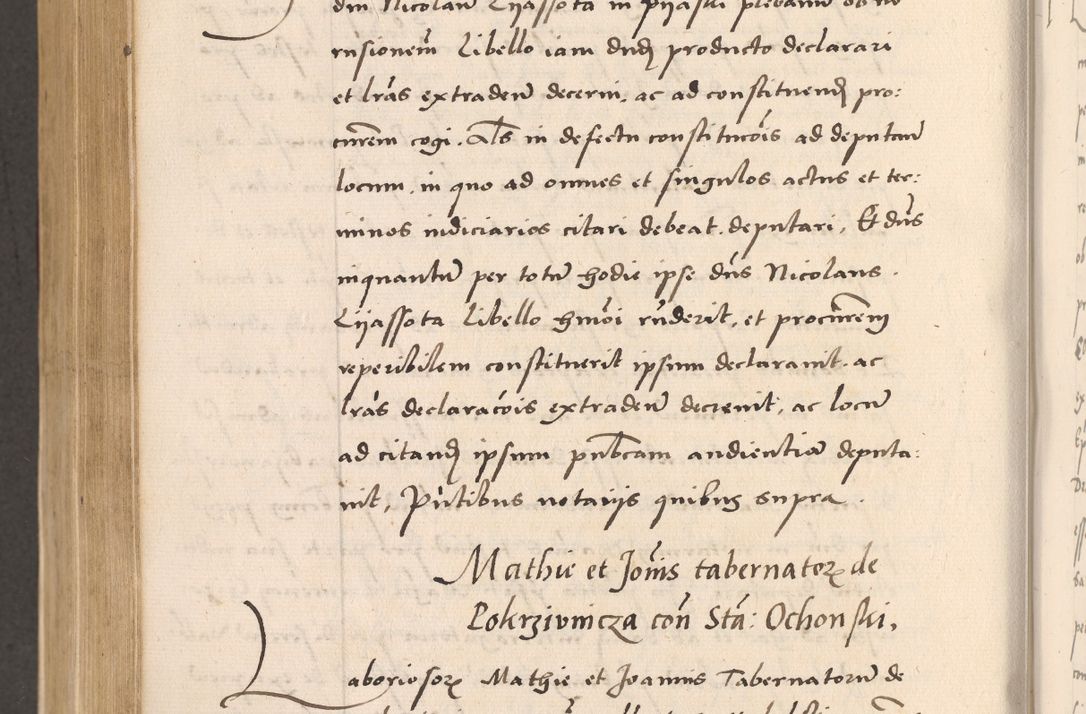 dm Nicolaū Lÿassota in pÿaski plebanū ob no
rnsionem̃ Libello iam dud producto declarari
et lrãs extradeñ decerni, ac ad constituend pro:
curem̃ cogi. Als in defectu constitucõis ad deputaū
locum, in quo ad omnes et singulos actus et ter:
minos iudiciarios citari debeat, deputari, Et dũs
inquantū per totū hodie ipse dñs Nicolaus.
Lÿassota Libello hmõi rñderit, et procurem̃
reperibilem constituerit ipsum declarauit. ac
lrãs declaracõis extradeñ decreuit, ac locū
ad citand ipsum publicam audientiā deputa:
uit, Pñtibus notarijs quibus supra.
Mathie et Joañis tabernatorꝝ de
Pokrziwnicza coñ Stã: Ochonski,
Laboriosorꝝ Mathie et Joannis Tabernatorū de